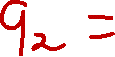 q₂ =